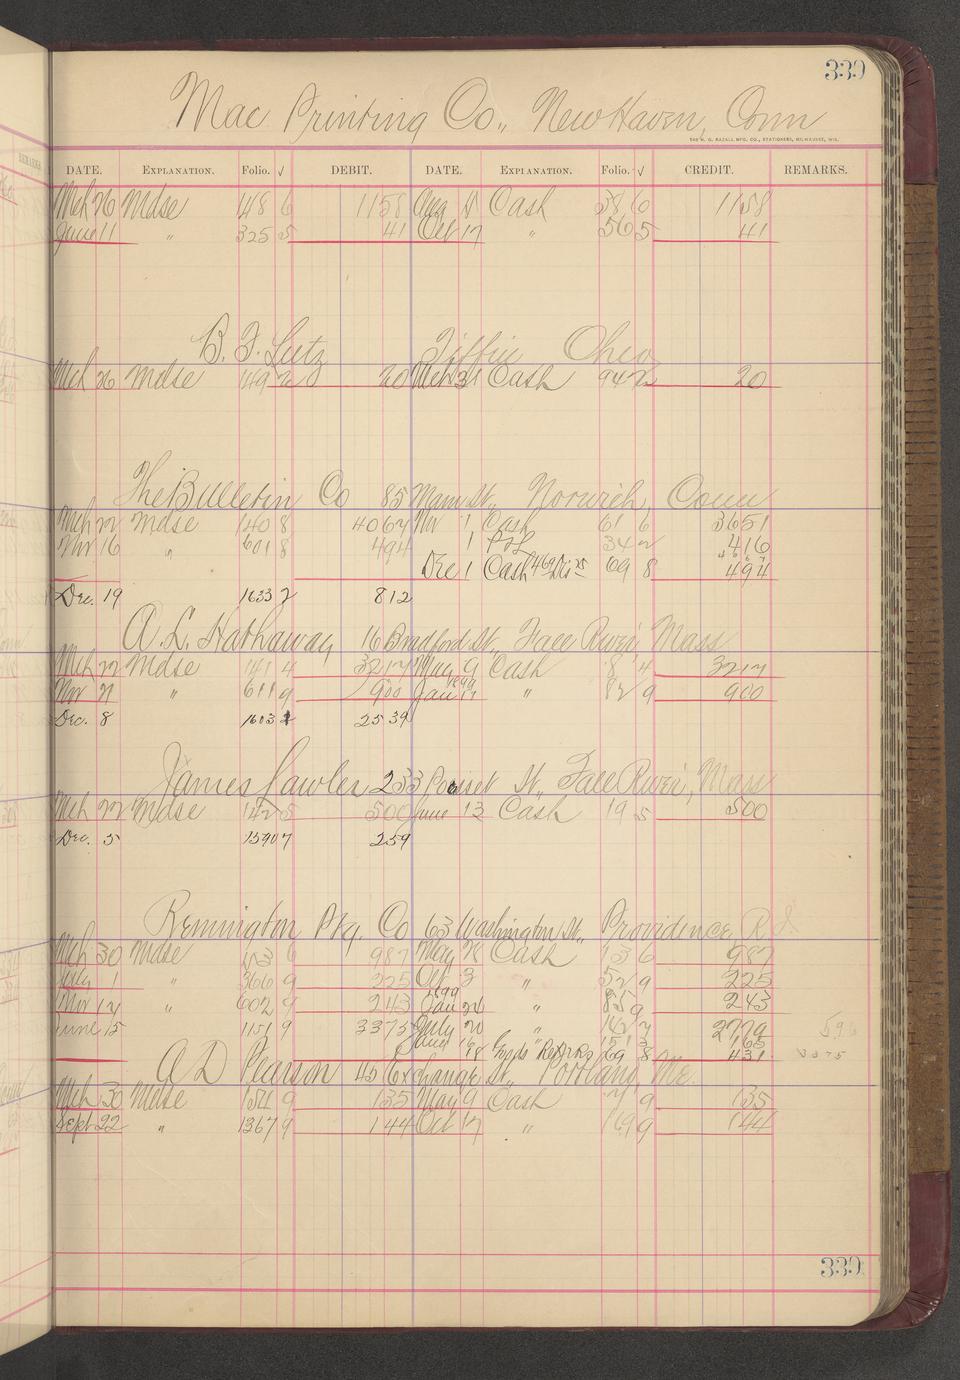 339
Mac Printing Co., New Haven, Conn
THE H. G. RAZALL MFG. CO., STATIONERS, MILWAUKEE, WIS.
DATE. EXPLANATION. Folio. √ DEBIT. DATE. EXPLANATION. Folio. √ CREDIT. REMARKS.
Mch 26 Mdse 148 6 1158 Aug 8 Cash 38 6 1158
June 11 " 325 5 41 Oct 17 " 56 5 41
B. F. Lutz Tiffin Ohio
Mch 26 Mdse 149 2 20 Mch 31 Cash 94 2 20
The Bulletin Co 85 Main St., Norwich, Conn
Mch 22 Mdse 140 8 4067 Nov 1 Cash 61 6 3651
Nov 16 " 601 8 494 1 P&L 34 2 416
Dec 1 Cash 69 8 494
Dec. 19 1633 2 812
A. L. Hathaway 16 Bradford St., Fall River, Mass
Mch 22 Mdse 141 4 3217 May 9 Cash 8 4 3217
Nov 21 " 611 9 900 Jan 17 " 82 9 900
Dec. 8 1603 2539
James Lawler 233 St., Fall River, Mass
Mch 22 Mdse 142 5 500 June 13 Cash 19 5 500
Dec. 5 1590 7 259
Remington Ptg. Co 63 Washington St., Providence R.I.
Mch 30 Mdse 153 6 987 May Cash 13 6 987
July 1 " 366 9 225 Oct 3 " 52 9 225
Nov 17 " 602 9 243 Jan 24 " 85 9 243
June 15 1151 9 3375 July 20 " 142 7 2779 596
165
18 Goods Retrns 69 8 431 3375
A D Pearson 45 Exchange St., Portland, Me.
Mch 30 Mdse 154 9 135 May 9 Cash 7 9 135
Sept 22 " 1367 9 144 Oct 17 " 169 9 144
339